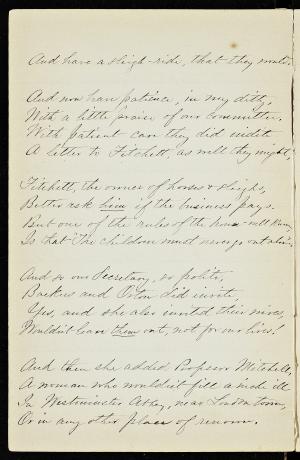 And have a sleigh-ride, that they would.
And now have patience, in my ditty,
With a little praise of our committee.
With patient care they did indite
A letter to Fitchett, as well they might,
Fitchett, the owner of horses & sleighs,
Better ask him if the business pays.
But one of the rules of the house well known
Is that "The children must never go out alone".
And so our Secretary, so polite,
Backus and Orton did invite,
Yes, and she also invited their wives,
Wouldn't leave them out, not for our lives!
And then she added Professor Mitchell,
A woman who wouldn't fill a niche ill
In Westminster Abbey, near London town,
Or in any other place of renown.